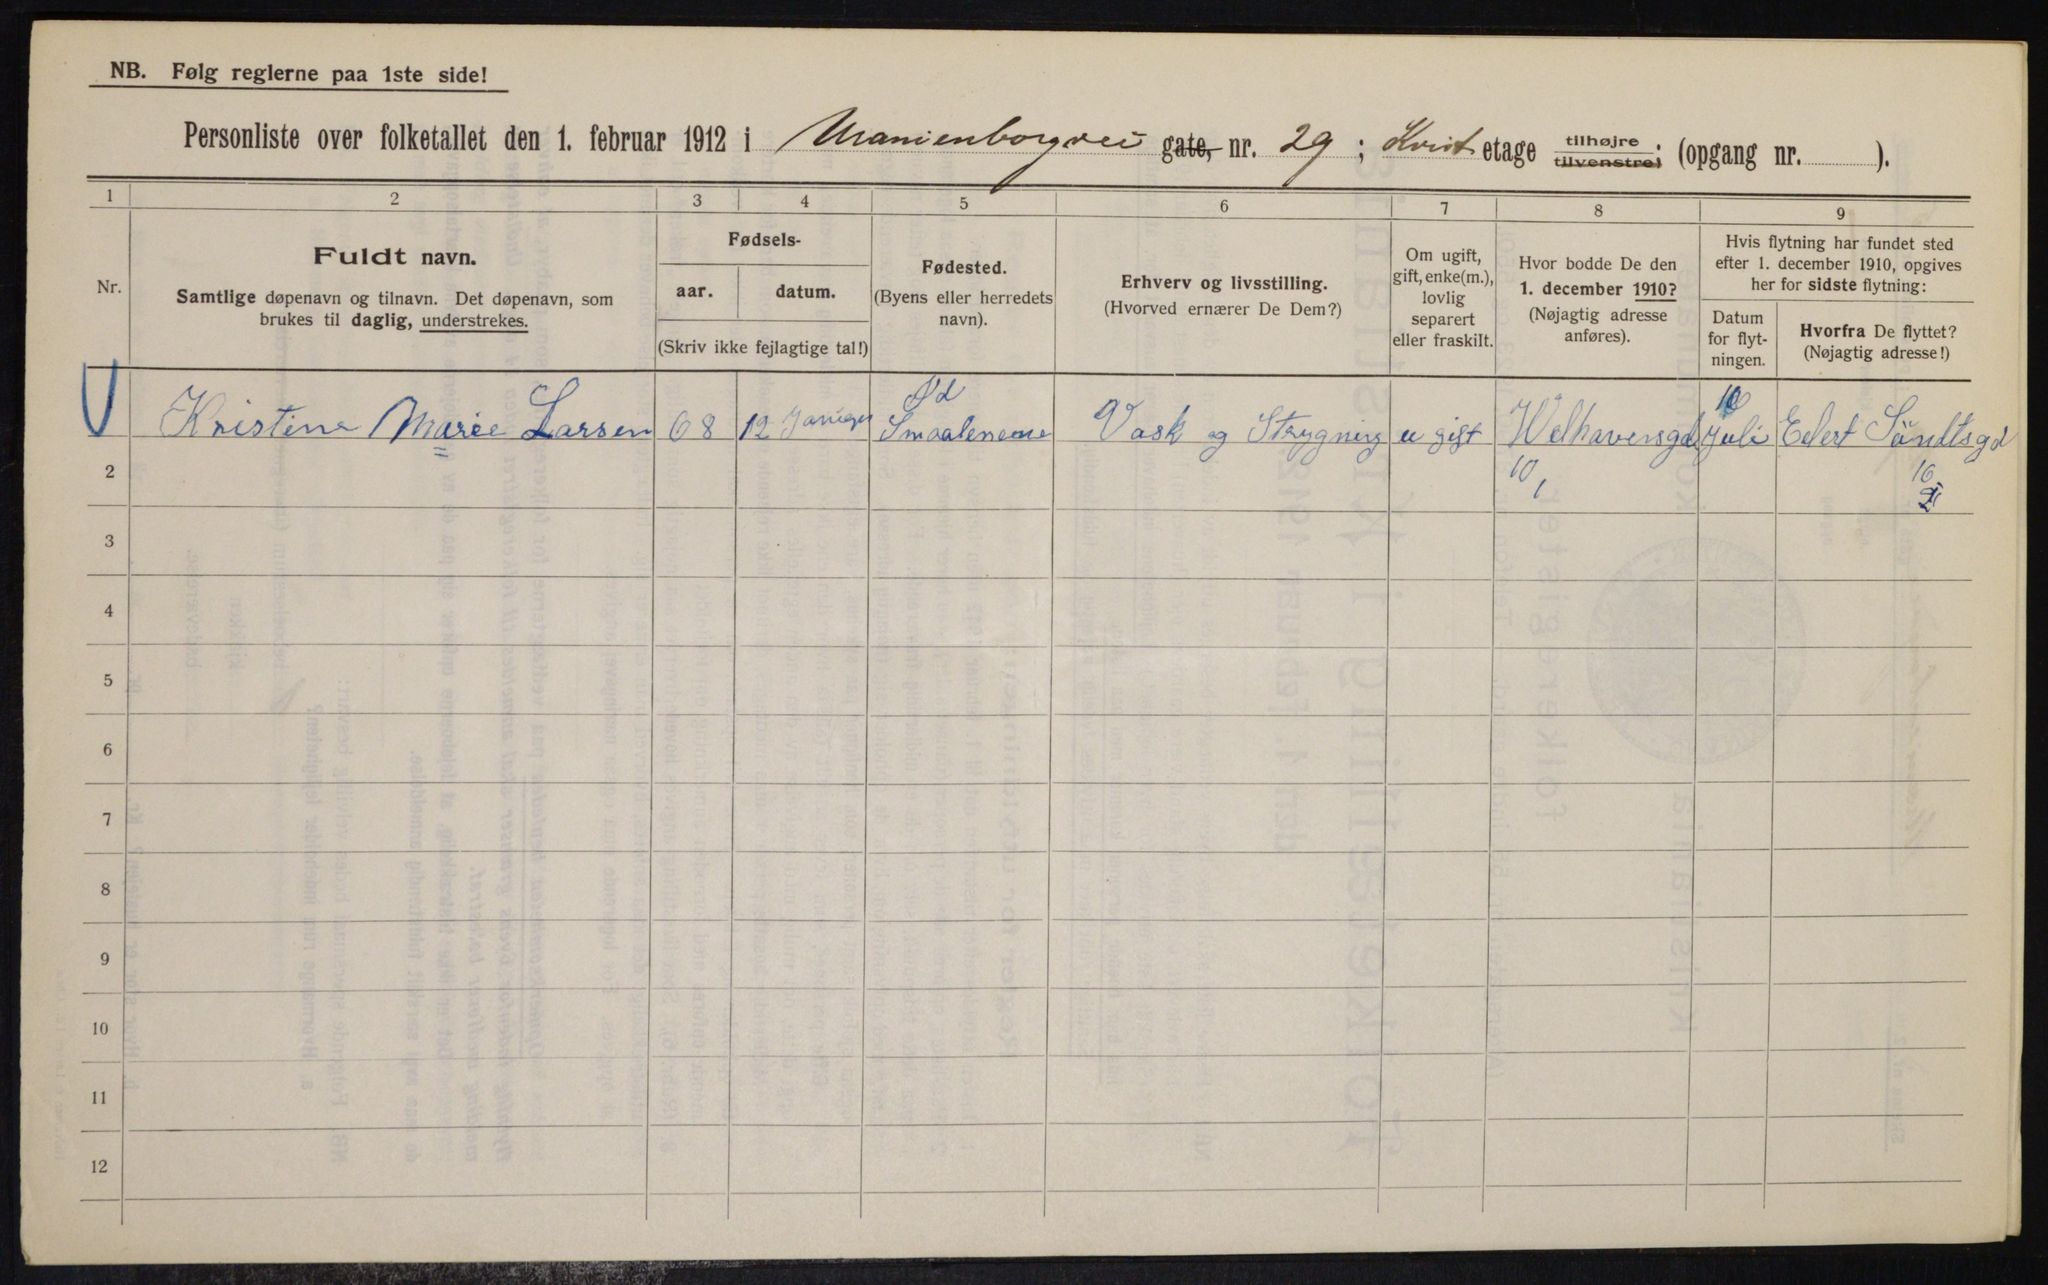 NB. Følg reglerne paa 1ste side!
Personliste over folketallet den 1. februar 1912 i Uranienborgvei gate, nr. 29 ; Kvist etage tilhøjre tilvenstre; (opgang nr. ).
1 2 3 4 5 6 7 8 9
Nr.
Fuldt navn.
Samtlige døpenavn og tilnavn. Det døpenavn, som
brukes til daglig, understrekes.
Fødsels-
aar. datum.
(Skriv ikke fejlagtige tal!)
Fødested.
(Byens eller herredets
navn).
Erhverv og livsstilling.
(Hvorved ernærer De Dem?)
Om ugift,
gift, enke(m.),
lovlig
separert
eller fraskilt.
Hvor bodde De den
1. december 1910?
(Nøjagtig adresse
anføres).
Hvis flytning har fundet sted
efter 1. december 1910, opgives
her for sidste flytning:
Datum
for flyt-
ningen.
Hvorfra De flyttet?
(Nøjagtig adresse!)
Kristine Marie Larsen 68 12 Januar Smaalenene Vask og Strygning ugift Welhavensgd 10 Juli Eilert Sundtsgd
2 10 16
3
4
5
6
7
8
9
10
11
12